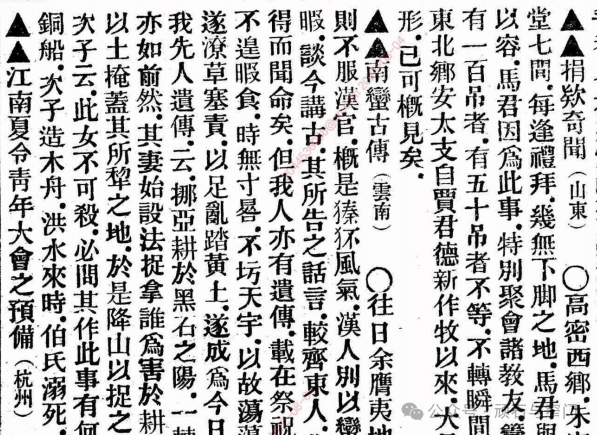 ▲▲捐欵奇聞(山東) ○高密西鄉.朱
堂七間.每逢禮拜.幾無下脚之地.馬君與
以容.馬君因爲此事.特別聚會諸教友.籌
有一百吊者.有五十吊者不等.不轉瞬間
東北鄉安太支自賈君德新作牧以來.大
形.已可概見矣.
▲▲南蠻古傳(雲南) ○往日余膺夷地
則不服漢官.概是獉狉風氣.漢人別以蠻
暇.談今講古.其所告之話言.較齊東人.
得而聞命矣.但我人亦有遺傳.載在祭祝
不遑暇食.時無寸晷.不圬天宇.以故蕩蕩
遂潦草塞責.以足亂踏黃土.遂成爲今日
我先人遺傳.云.挪亞耕於黑石之陽.一
亦如前然.其妻始設法捉拿誰爲害於耕
以土掩蓋其所犂之地.於是降山以捉之
次子云.此女不可殺.必問其作此事有何
銅船.次子造木舟.洪水來時.伯氏溺死.
▲▲江南夏令青年大會之預備(杭州)
公众号